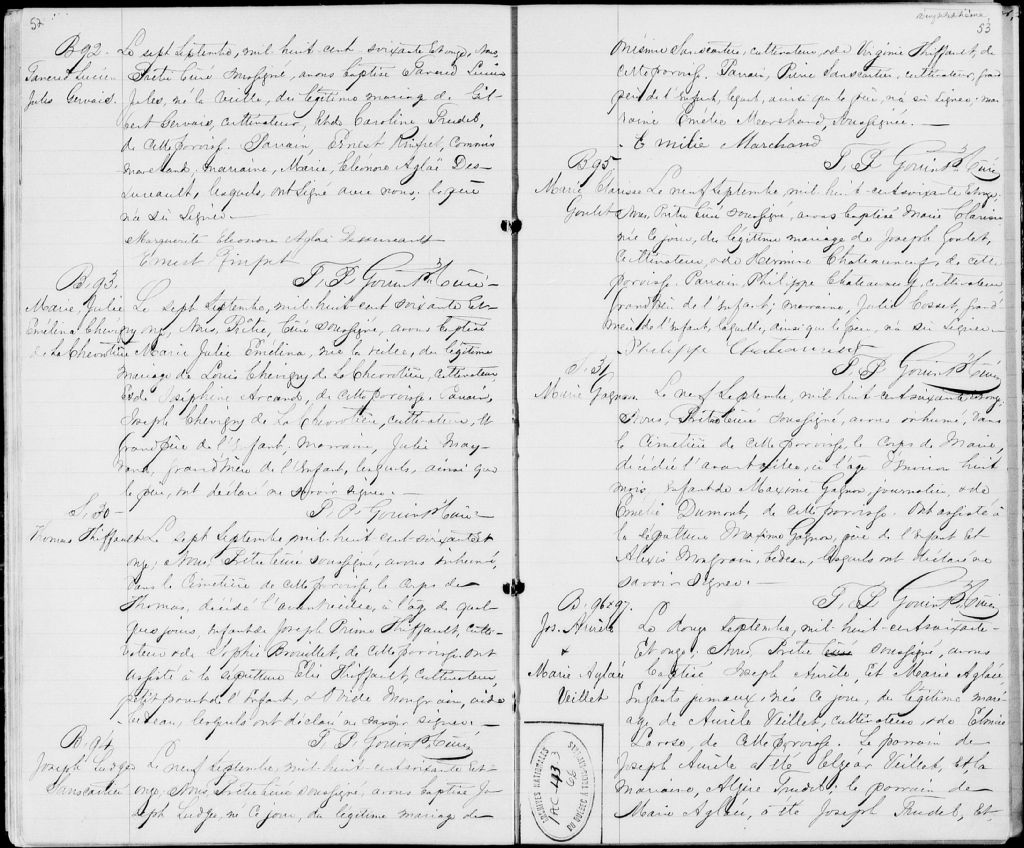 52
B. 92. Le sept Septembre, mil huit cent soixante et onze, Nous,
Prêtre Curé soussigné, avons baptisé Lucien
Jules Gervais. Jules, né la veille, du légitime mariage de Gil-
bert Gervais, cultivateur, et de Caroline Trudel,
de cette paroisse. Parrain, Ernest Rinfret, Commis
marchand; marraine, Marie, Eléonore Aglaë Des-
sureault, lesquels, ont signé avec nous; le père
n'a su signer.
Marguerite Eleonore Aglaé Dessureault
Ernest Rinfret
B. 93. T. P. Gouin Ptre Curé
Marie, Julie Le sept Septembre, mil huit cent soixante et
Emélina Chevigny onze, Nous, Prêtre, Curé soussigné, avons baptisé
de La Chevrotière Marie Julie Emélina, née la veille, du légitime
mariage de Louis Chevigny de La Chevrotière, cultivateur,
et de Joséphine Arcand, de cette paroisse. Parrain,
Joseph Chevigny de La Chevrotière, cultivateur, et
grand père de l'Enfant; marraine, Julie May-
rand, grand'mère de l'Enfant, lesquels, ainsi que
le père, ont déclaré ne savoir signer.
S. 30 T. P. Gouin Ptre Curé
Thomas Thiffault Le sept Septembre mil huit cent soixante et
onze; Nous, Prêtre Curé soussigné, avons inhumé,
dans le Cimetière de cette paroisse, le corps de
Thomas, décédé l'avant veille, à l'âge de quel-
ques jours, enfant de Joseph Primo Thiffault, culti-
vateur & de Sophie Brouillet, de cette paroisse. Ont
assisté à la sépulture Elie Thiffault, cultivateur,
petit parent de l'Enfant, & Ovide Mongrain, aide
bedeau, lesquels ont déclaré ne savoir signer.
B. 94. T. P. Gouin Ptre Curé
Joseph Ludger Le neuf Septembre, mil huit cent soixante et
Sanscartier onze; Nous, Prêtre Curé soussigné, avons baptisé Jo-
seph Ludger, né ce jour, du légitime mariage de
53
Sanscartier, cultivateur, & de Virginie Thiffault, de
cette paroisse. Parrain, Pierre Sanscartier, cultivateur, grand
père de l'Enfant, lequel, ainsi que le père, n'a su signer; mar-
raine Emélie Marchand, soussignée.
Emilie Marchand
B. 95 T. P. Gouin Ptre Curé
Marie Clarisse Le neuf Septembre, mil huit cent soixante et onze;
Goulet Nous, Prêtre Curé soussigné, avons baptisé Marie Clarisse
née ce jour, du légitime mariage de Joseph Goulet,
cultivateur, & de Hermine Chateauneuf, de cette
paroisse. Parrain Philippe Chateauneuf, cultivateur
grand père de l'Enfant; marraine, Julie Cosset, grand'
mère de l'Enfant, laquelle, ainsi que le père, n'a su signer.
Philippe Chateauneuf
S. 31 T. P. Gouin Ptre Curé
Marie Gagnon. Le neuf Septembre, mil huit cent soixante et onze,
Nous, Prêtre Curé soussigné, avons inhumé, dans
le Cimetière de cette paroisse, le corps de Marie,
décédée l'avant veille, à l'âge d'environ huit
mois, enfant de Maxime Gagnon, journalier, & de
Emélie Dumont, de cette paroisse. Ont assisté à
la sépulture Maxime Gagnon, père de l'Enfant et
Alexis Mongrain, bedeau, lesquels ont déclaré ne
savoir signer.
B. 96 & 97. T. P. Gouin Ptre Curé
Jos. Aurèle Le douze Septembre, mil huit cent soixante
& et onze; Nous, Prêtre soussigné, avons
Marie Aglaée baptisé Joseph Aurèle, et Marie Aglaée
Veillet Enfants jumeaux, nés ce jour, du légitime mari-
age de Aurèle Veillet, cultivateur, & de
de cette paroisse. Le parrain de
Joseph Aurèle a été Elzéar Veillet, et la
marraine, Trudel; le parrain de
Marie Aglaée, a été Joseph Trudel, et
ARCHIVES NATIONALES
AC-43
66
DU QUÉBEC